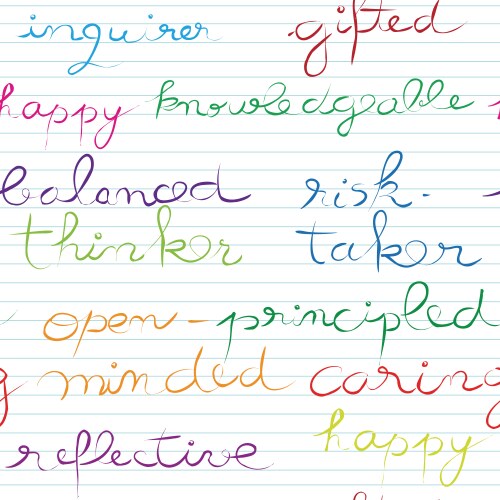 inquirer gifted
happy knowledgeable
balanced risk-
thinker taker
open- principled
minded caring
reflective happy